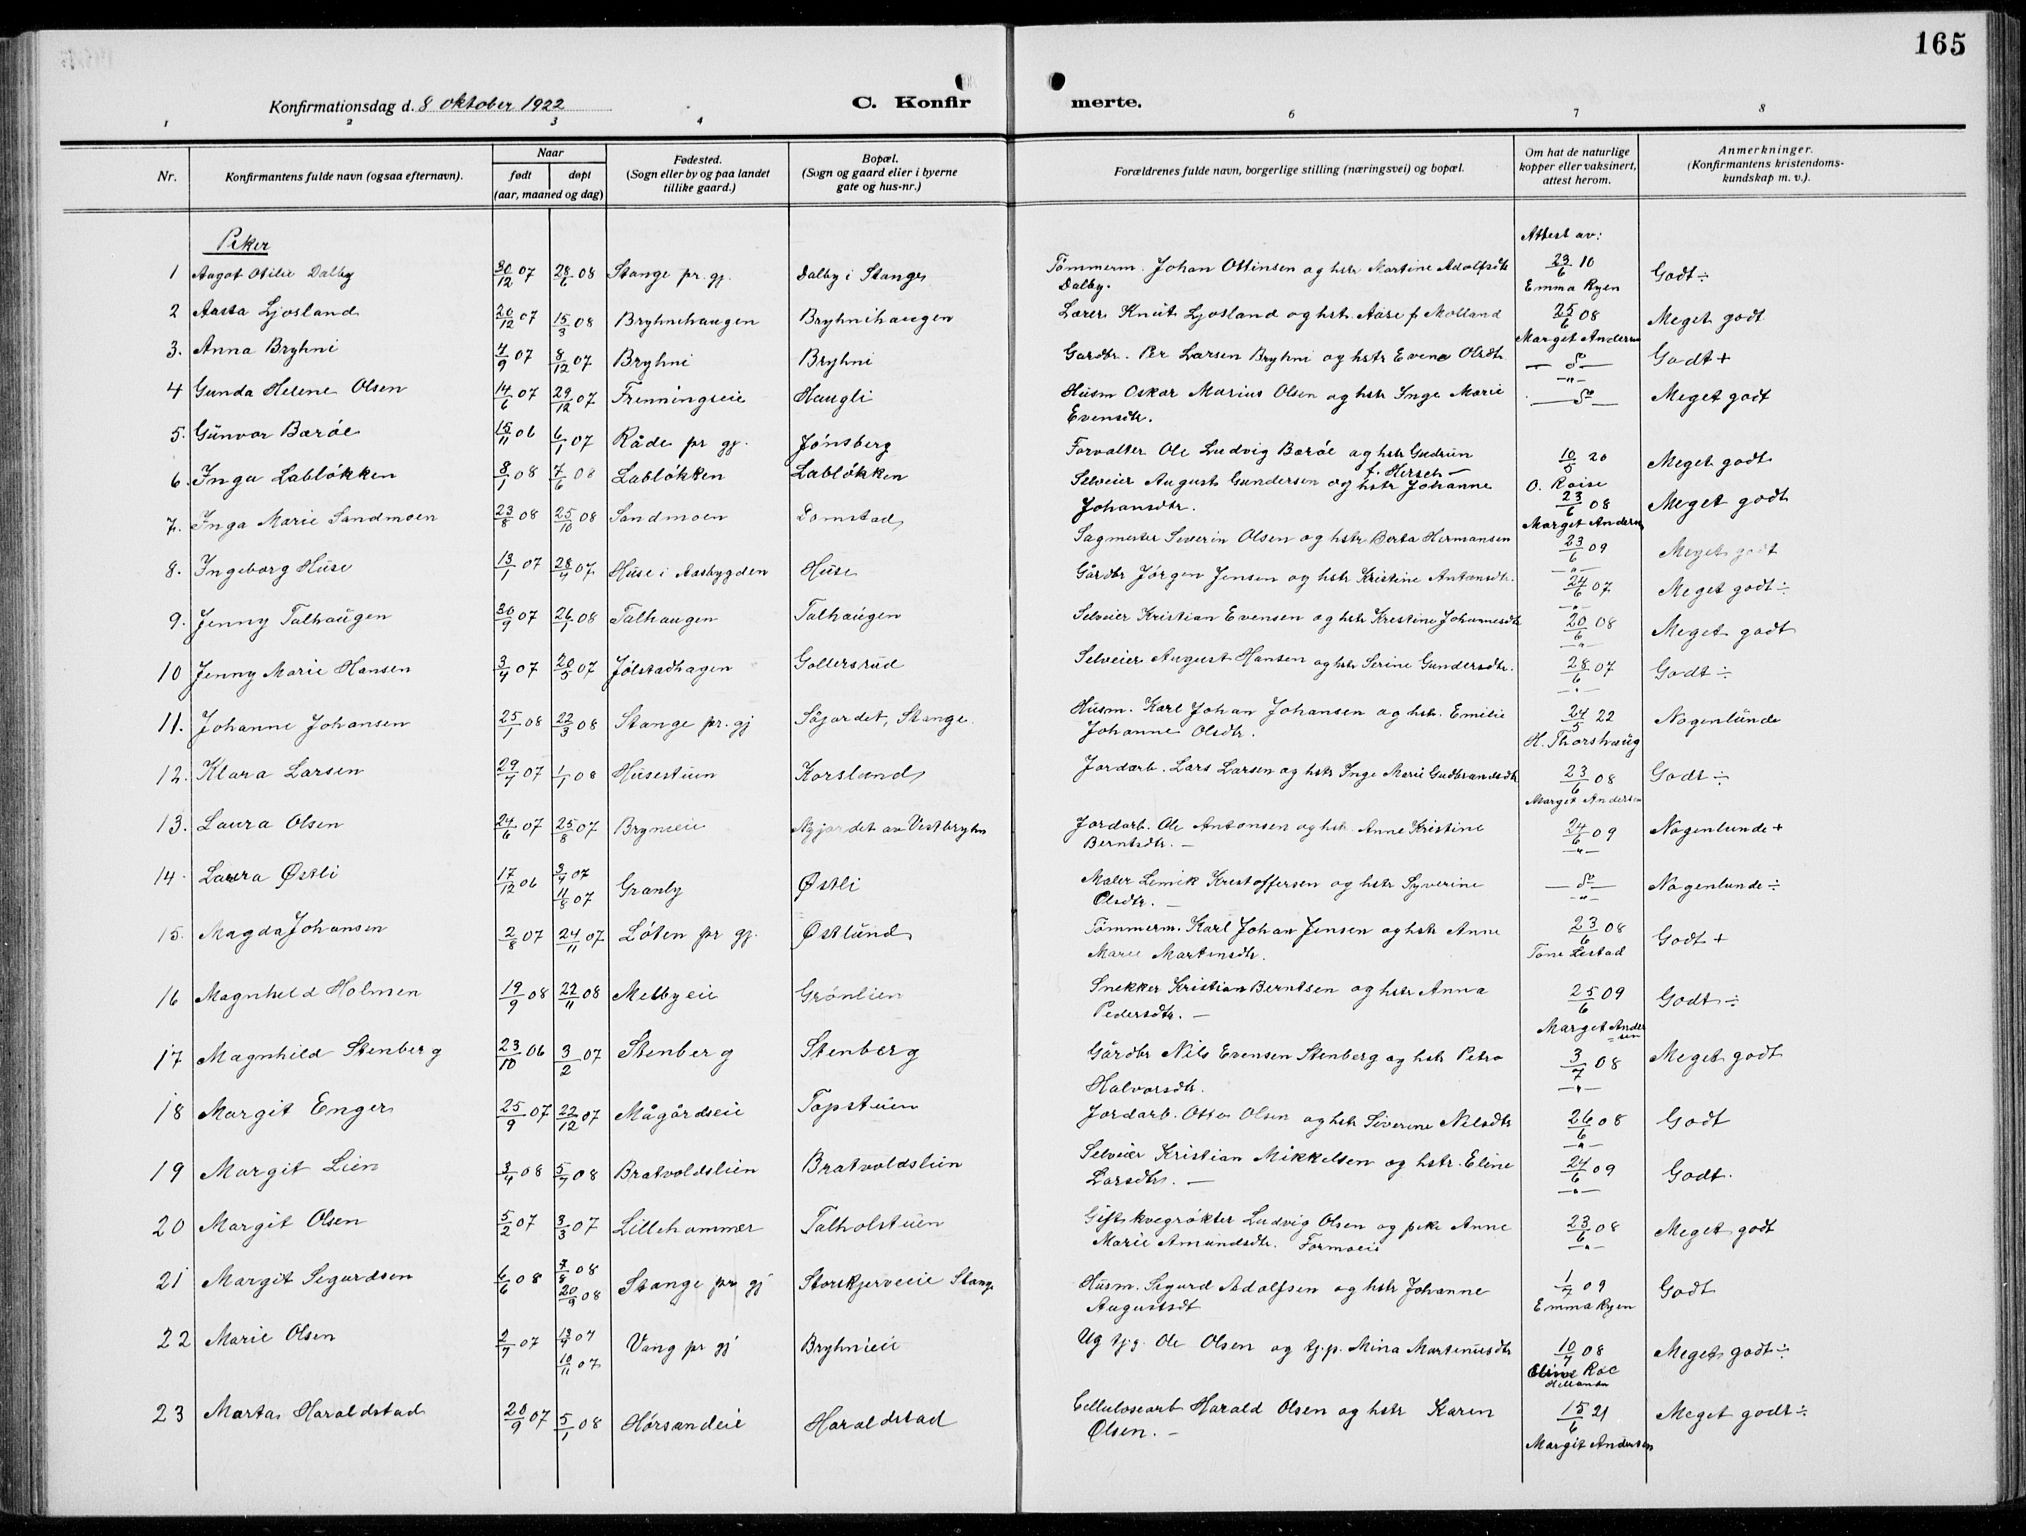 165
Konfirmationsdag d. 8 oktober 1922
C. Konfir
merte.
1 2 3 4 6 7 8
Nr.
Konfirmantens fulde navn (ogsaa efternavn).
Naar
født døpt
(aar, maaned og dag)
Fødested.
(Sogn eller by og paa landet
tillike gaard.)
Bopæl.
(Sogn og gaard eller i byerne
gate og hus-nr.)
Forældrenes fulde navn, borgerlige stilling (næringsvei) og bopæl.
Om hat de naturlige
kopper eller vaksinert,
attest herom.
Anmerkninger.
(Konfirmantens kristendoms-
kundskap m. v.).
Piker
Attest av:
1 Aagot Otilie Dalby 30/12 07 28/6 08 Stange pr. gj. Dalby i Stange Tømmerm. Johan Ottinsen og hstr Martine Adolfsdtr 23/6 10 Godt ÷
Dalby. Emma Ryen
2 Aasta Ljosland 20/12 07 15/3 08 Bryhnihaugen Bryhnihaugen Lærer Knut Ljosland og hstr. Aase f Molland 25/6 08 Meget godt
Marget Andersen
3. Anna Bryhni 4/9 07 8/12 07 Bryhni Bryhni Gardbr. Per Larsen Bryhni og hstr Evena Olsdtr — do — Godt +
—"—
4 Gunda Helene Olsen 14/6 07 29/12 07 Frenningseie Haugli Husm Oskar Marius Olsen og hstr Inge Marie — do — Meget godt
Evensdtr.
5. Gunvor Barøe 15/11 06 6/1 07 Råde pr gj. Jønsberg Forvalter Ole Ludvig Barøe og hstr Gudrun 10/5 20 Meget godt
f. Hersch — O. Roise
6. Inga Labløkken 8/1 08 7/6 08 Labløkken Labløkken Selveier August Gundersen og hstr Johanne 23/6 08 Meget godt
Johansdtr. Marget Andersen
7. Inga Marie Sandmoen 23/8 08 25/10 08 Sandmoen Lomstad Sagmester Severin Olsen og hstr Berta Hermansen 23/6 09 Meget godt
—"—
8. Ingeborg Huse 13/1 07 28/4 07 Huse i Aasbygden Huse Gårdbr Jørgen Jensen og hstr Kristine Antonsdtr. 24/6 07 Meget godt ÷
—"—
9. Jenny Talhaugen 30/9 07 26/1 08 Talhaugen Talhaugen Selveier Kristian Evensen og hstr Kristine Johannesdtr 20/6 08 Meget godt
—"—
10 Jenny Marie Hansen 3/4 07 20/5 07 Jølstadhagen Gollersrud Selveier August Hansen og hstr Serine Gundersdtr. 28/6 07 Godt ÷
—"—
11. Johanne Johansen 25/1 08 22/3 08 Stange pr. gj Søjordet, Stange Husm. Karl Johan Johansen og hstr. Emilie 24/5 22 Nogenlunde
Johanne Olsdtr. H. Thorshaug
12. Klara Larsen 29/7 07 1/1 08 Husestuen Korsland Jordarb. Lars Larsen og hstr Inge Marie Gudbrandsdtr 23/6 08 Godt ÷
Marget Andersen
13. Laura Olsen 24/6 07 25/8 07 Brynieie Nyjordet av Vestbryhn Jordarb. Ole Antonsen og hstr. Anne Kristine 24/6 09 Nogenlunde +
Berntsdtr. — —"—
14. Laura Østli 17/12 06 3/4 07 11/8 07 Granby Østli Maler Lemik Kristoffersen og hstr Syverine — do — Nogenlunde ÷
Olsdtr. — —"—
15. Magda Johansen 2/8 07 24/11 07 Løten pr gj. Østlund Tømmerm. Karl Johan Jensen og hstr Anne 23/6 08 Godt +
Marie Martinsdtr. Tone Lestad
16 Magnhild Holmen 19/9 08 22/11 08 Melbyeie Grønlien Snekker Kristian Berntsen og hstr Anna 25/6 09 Godt ÷
Pedersdtr. — Marget Andersen
17 Magnhild Stenberg 23/10 06 3/2 07 Stenberg Stenberg Gårdbr Nils Evensen Stenberg og hstr Petra 3/7 08 Meget godt
Halvorsdtr. —"—
18 Margit Enger 25/9 07 22/12 07 Mågårdseie Topstuen Jordarb. Otto Olsen og hstr Severine Nilsdtr 26/6 08 Godt
—"—
19 Margit Lien 3/4 08 5/7 08 Bratvoldslien Bratvoldslien Selveier Kristian Mikkelsen og hstr. Eline 24/6 09 Godt.
Larsdtr. — —"—
20 Margit Olsen 5/2 07 3/3 07 Lillehammer Talholstuen Gift kvegrøkter Ludvig Olsen og pike Anne 23/6 08 Meget godt
Marie Amundsdtr. Formoeie —"—
21 Margit Segurdsen 6/6 08 7/8 08 20/9 08 Stange pr gj Storskjerveeie Stange Husm. Segurd Adolfsen og hstr Johanne 1/7 09 Godt
Augustsdt Emma Ryen
22 Marie Olsen 2/7 07 13/7 07 10/11 07 Vang pr gj Bryhnieie Ug tj.g. Ole Olsen og tj.p. Mina Martinusdtr 10/7 08 Meget godt ÷
Roe
23 Marta Haraldstad 20/9 07 5/1 08 Hørsandeie Haraldstad Cellulosearb Harald Olsen og hstr Karen 15/6 21 Meget godt ÷
Olsen. — Margit Andersen